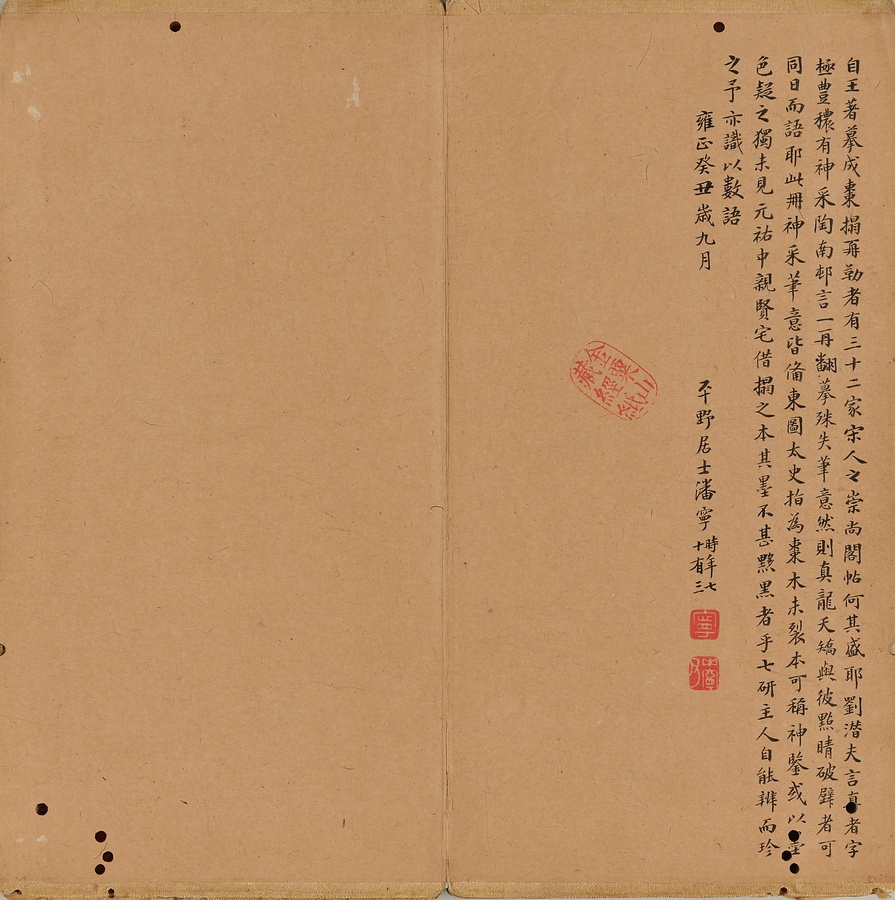 自王著摹成棗搨再勒者有三十二家宋人之崇尚閣帖何其盛耶劉潛夫言真者字
極豊穠有神采陶南邨言一再翻摹殊失筆意然則真龍天矯與彼點睛破壁者可
同日而語耶此冊神采筆意皆備東圖太史指為棗木未裂本可稱神鑒或以墨
色疑之獨未見元祐中親賢宅借搨之本其墨不甚黟黑者乎七研主人自能辨而珍
之予亦識以數語
雍正癸丑歲九月
平野居士潘寧時年七十有三
寧
金粟山藏經紙